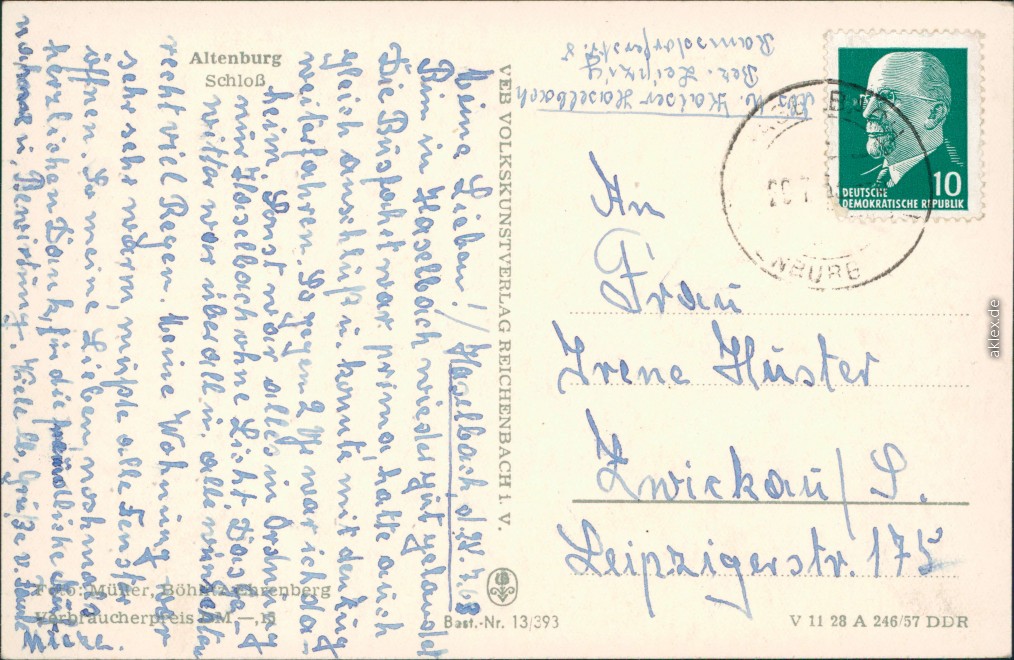 Altenburg
Schloß
Meine Lieben! / Haselbach, d. 22.7.63
Bin in Haselbach wieder gut gelandet
Die Busfahrt war prima, hatte auch
gleich anschluß u. konnte mit dem Zug
weiterfahren. So gegen 2 Uhr war ich da-
heim. Sonst war alles in Ordnung
nur Haselbach ohne Licht. Das Ge-
witter war überall u. alle wünschten
recht viel Regen. Meine Wohnung war
sehr sehr warm, mußte alle Fenster
öffnen. So meine Lieben nochmals
herzlichen Dank für die freundliche Auf-
nahme u. Bewirtung. Viele lb. Grüße v.
Foto: Müller, Böhlitz-Ehrenberg
Verbraucherpreis DM —,15
VEB VOLKSKUNSTVERLAG REICHENBACH i. V.
Best.-Nr. 13/393
V 11 28 A 246/57 DDR
Abs. M. Kaiser Haselbach
Bez. Leipzig
Ramsdorferstr. 8
DEUTSCHE
DEMOKRATISCHE REPUBLIK
10
NBURG
An
Frau
Irene Hüster
Zwickau / S.
Leipzigerstr. 175
aklex.de